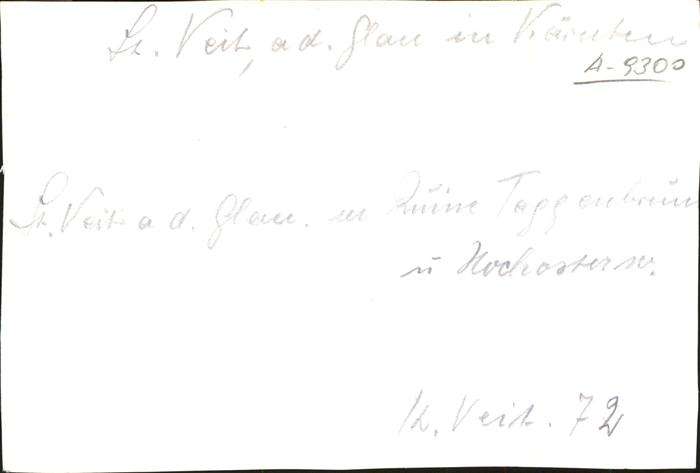 St. Veit, a d. Glan in Kärnten
A-9300
St. Veit a d. Glan. m Ruine Taggenbrunn
u Hochosterw.
St. Veit. 72